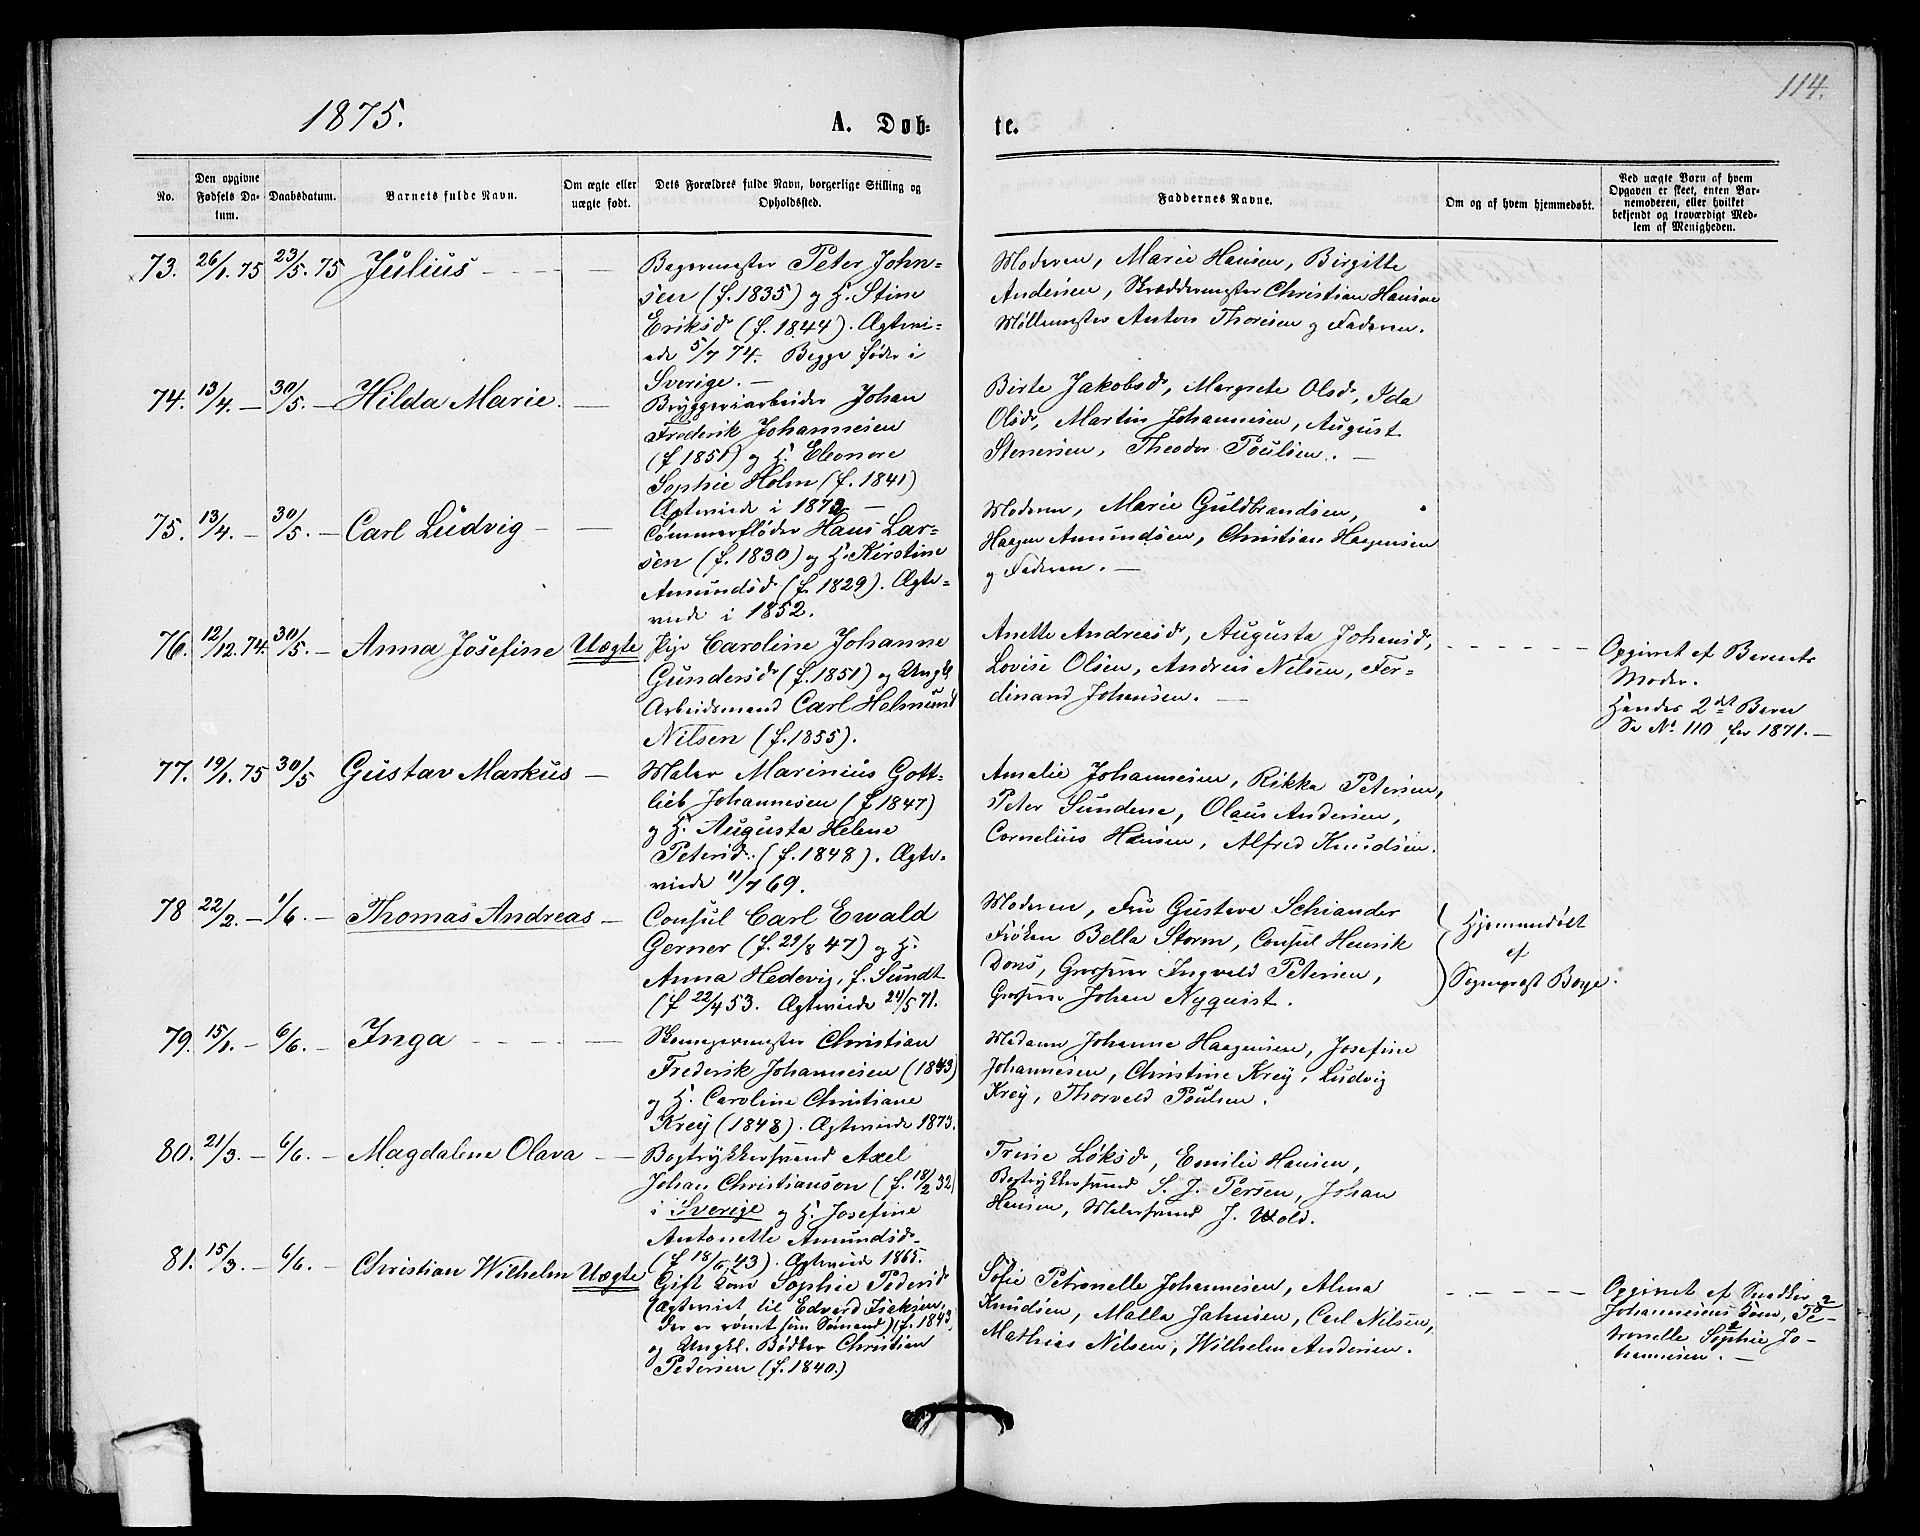 114.
1875.
A. Døb-
te.
No.
Den opgivne
Fødsels Da-
tum.
Daabsdatum.
Barnets fulde Navn.
Om ægte eller
uægte født.
Dets Forældres fulde Navn, borgerlige Stilling og
Opholdssted.
Faddernes Navne.
Om og af hvem hjemmedøbt.
Ved uægte Børn af hvem
Opgaven er skeet, enten Bar-
nemoderen, eller hvilket
bekjendt og troværdigt Med-
lem af Menigheden.
73. 26/1. 75 23/5. 75 Julius - - - - —
Bagermester Peter John-
sen (f. 1835) og H. Stine
Eriksd (f. 1844). Ægtevi-
ede 5/7 74. Begge fødte i
Sverige. —
Moderen, Marie Hansen, Birgitte
Andersen, Skræddermester Christian Hansen
Møllemester Anton Thoresen og Faderen.
74. 13/4. — 30/5. — Hilda Marie. —
Bryggeriarbeider Johan
Frederik Johannesen
(f 1851) og H. Eleonore
Sophie Holm (f. 1841)
Ægteviede i 1873 —
Birte Jakobsd, Margrete Olsd, Ida
Olsd, Martin Johannesen, August
Stenersen, Theodor Poulsen. —
75. 13/4. — 30/5. — Carl Ludvig — —
Tømmerfløder Hans Lar-
sen (f. 1830) og H. Kirstine
Amundsd (f. 1829). Ægte-
viede i 1852.
Moderen, Marie Guldbrandsen,
Haagen Amundsen, Christian Haagensen
og Faderen. —
76. 12/12. 74. 30/5. — Anna Josefine Uægte
Pige Caroline Johanne
Gundersd (f. 1851) og Ungk.
Arbeidsmand Carl Helmund
Nilsen (f. 1855).
Anette Andreasd, Augusta Johansd,
Lovise Olsen, Andreas Nilsen, Fer-
dinand Johansen. —
Opgivet af Barnets
Moder.
Hendes 2det Barn
Se No 110 for 1871. —
77. 19/1. 75 30/5 Gustav Markus —
Maler Marinius Gott-
lieb Johannesen (f. 1847)
og H. Augusta Helene
Petersd. (f. 1848). Ægte-
viede 11/7 69.
Amalie Johannesen, Rikka Petersen,
Peter Sundene, Olaus Andersen,
Cornelius Hansen, Alfred Knudsen.
78 22/2. — 1/6. — Thomas Andreas —
Consul Carl Ewald
Gerner (f. 29/8 47) og H.
Anna Hedevig, f. Sundt
(f 22/4 53. Ægteviede 24/5 71.
Moderen, Fru Gustava Schiander
Frøken Bella Storm, Consul Henrik
Dons, Grosserer Ingvald Petersen,
Grosserer Johan Nyquist.
Hjemmedøbt
af
Sogneprest Boye.
79. 15/1. — 6/6. — Inga - - - - —
Skomagermester Christian
Frederik Johannesen (1843)
og H. Caroline Christiane
Krey (1848). Ægteviede 1873.
Madam Johanne Haagensen, Josefine
Johannesen, Christine Krey, Ludvig
Krey, Thorvald Poulsen.
80. 21/3. — 6/6. — Magdalene Olava — —
Bogtrykkersvend Axel
Johan Christianson (f. 18/2 32)
i Sverige og H. Josefine
Antonette Amundsd.
(f 18/6 43). Ægteviede 1865.
Trine Løksd, Emilie Hansen,
Bogtrykkersvend S. J. Persen, Johan
Hansen, Malersvend J. Wold.
81. 15/3. — 6/6. — Christian Wilhelm Uægte
Gift Kone Sophie Pedersd
(Ægteviet til Edvard Isaksen,
der er rømt som Sømand) (f. 1843)
og Ungkl. Bødker Christian
Pedersen (f. 1840.)
Sofie Petronelle Johannesen, Alma
Knudsen, Malla Jahnsen, Carl Nilsen,
Mathias Nilsen, Wilhelm Andersen.
Opgivet af Snedker
Johannesens Kone, Pe-
tronelle Sophie Jo-
hannesen. —